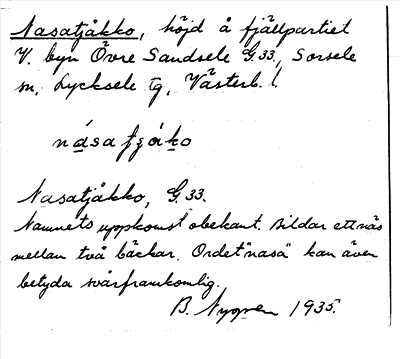 Nasatjåkko, höjd å fjällpartiet
V. byn Övre Sandsele G.33, Sorsele
sn, Lycksele tg, Västerb. l.
násatjåkko, G.33.
Namnets uppkomst obekant. Bildar ett näs
mellan två bäckar. Ordet "nasa" kan även
betyda svårframkomlig.
B. Nyman 1935.